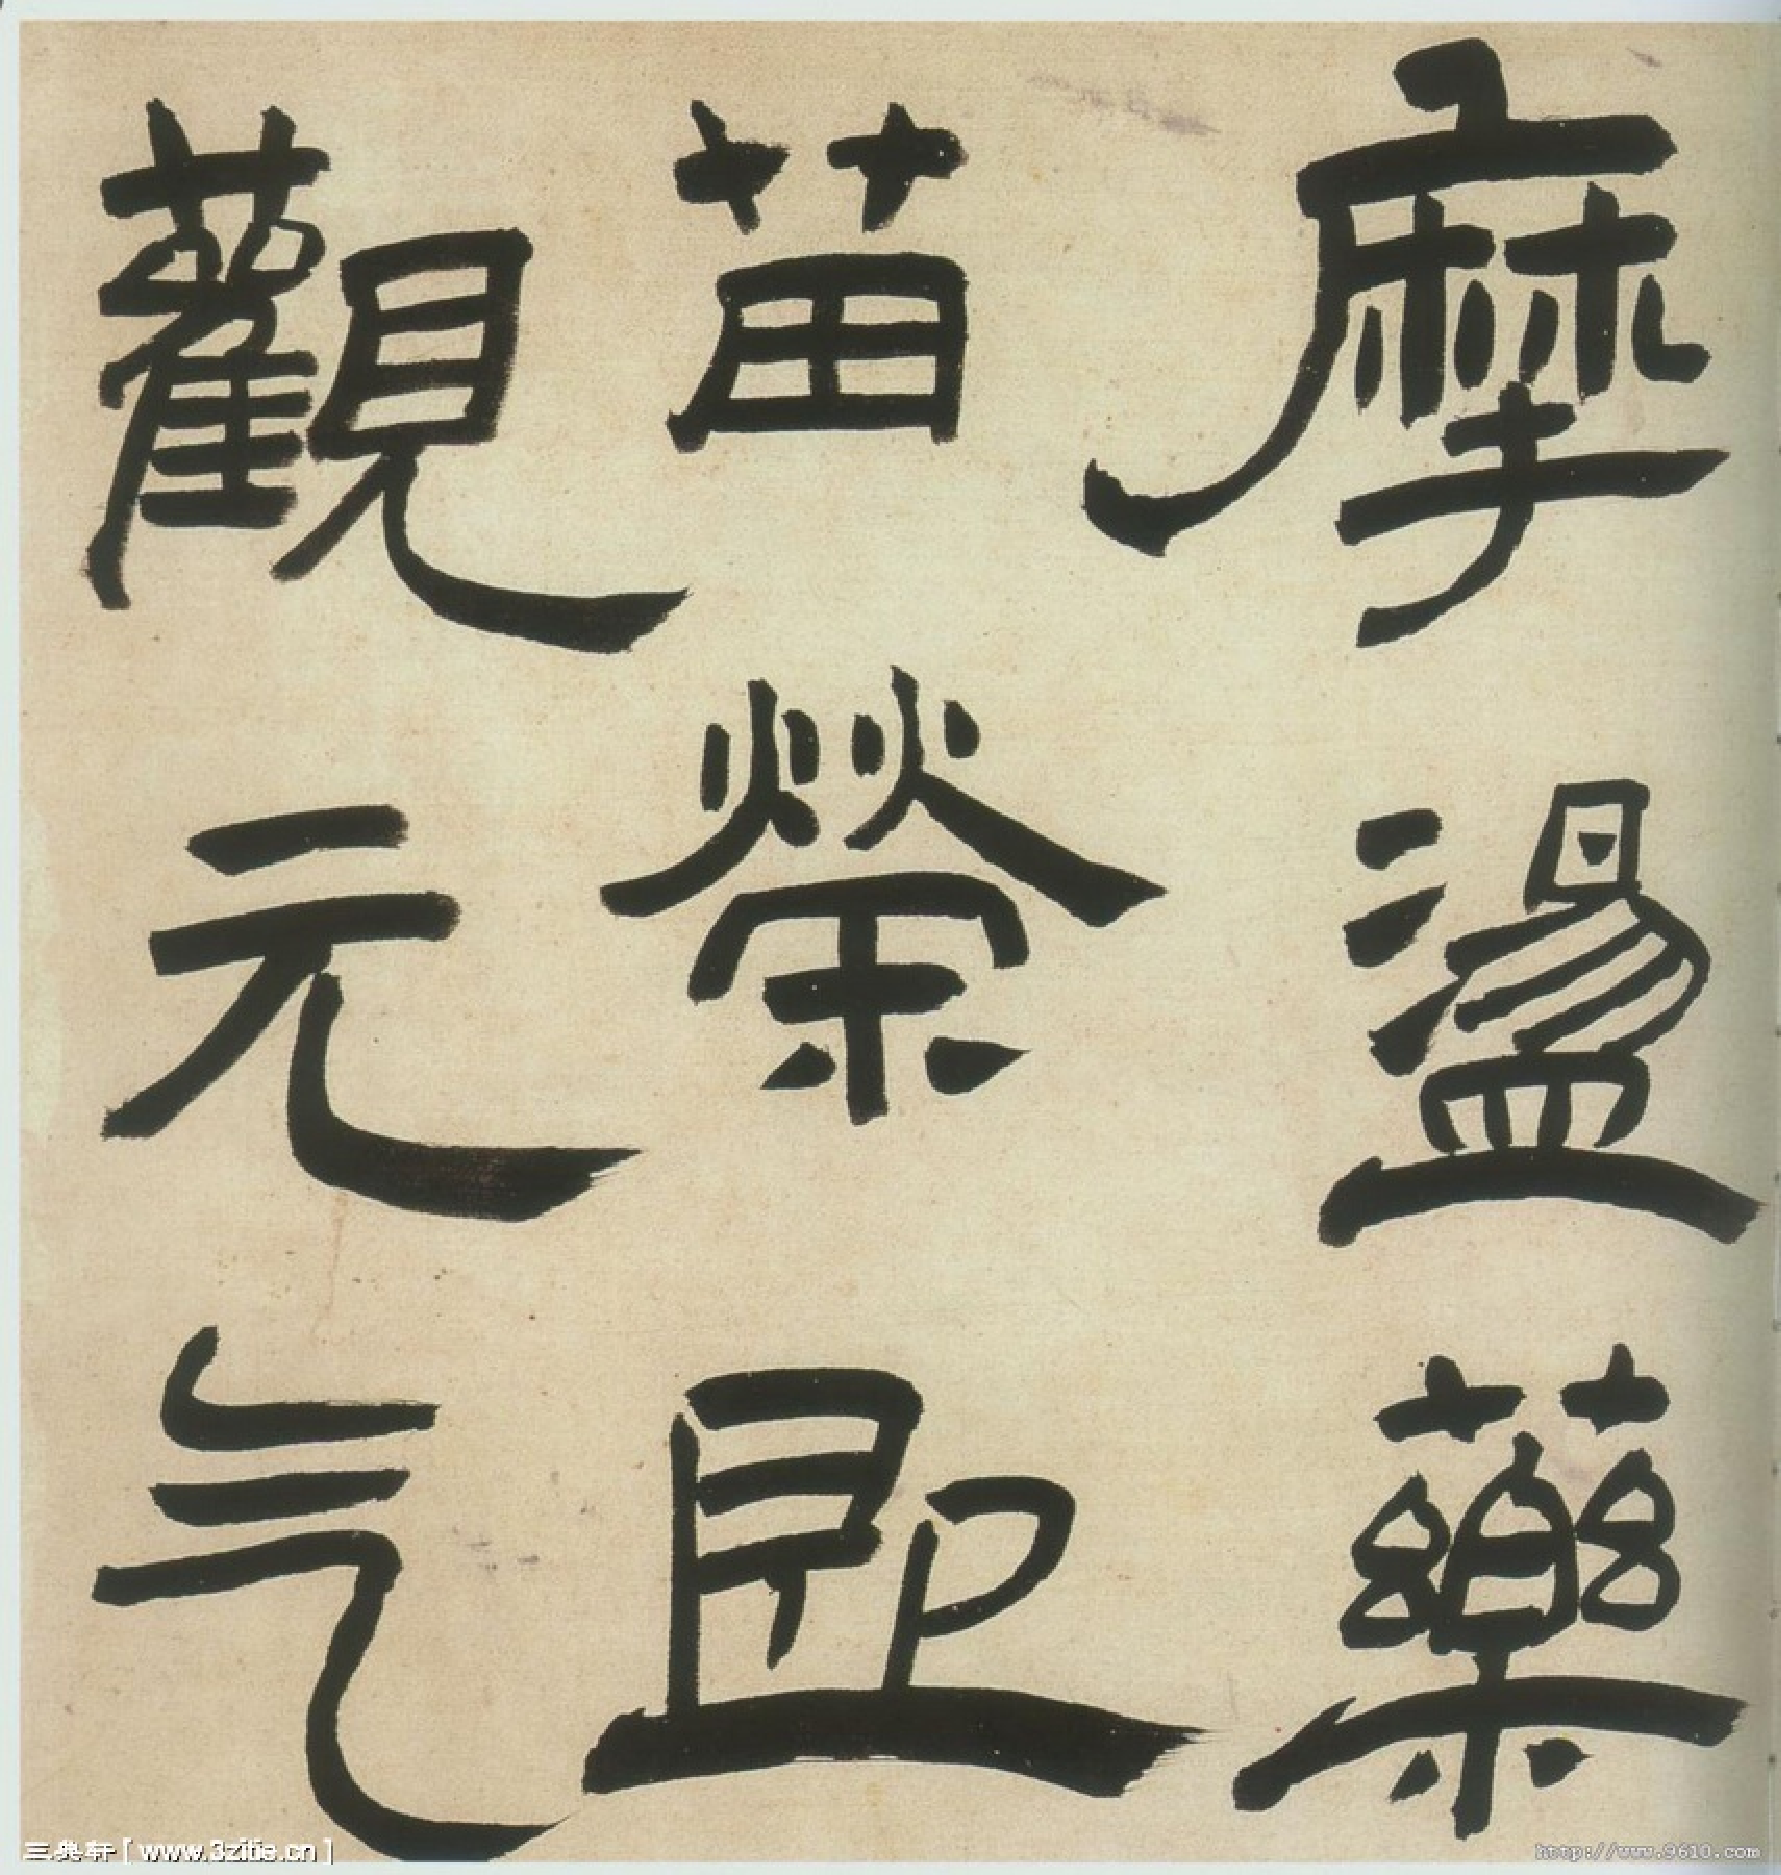 摩盪藥
苗榮即
觀元气
三典轩 [ www.3zitie.cn ]
http://www.9610.com